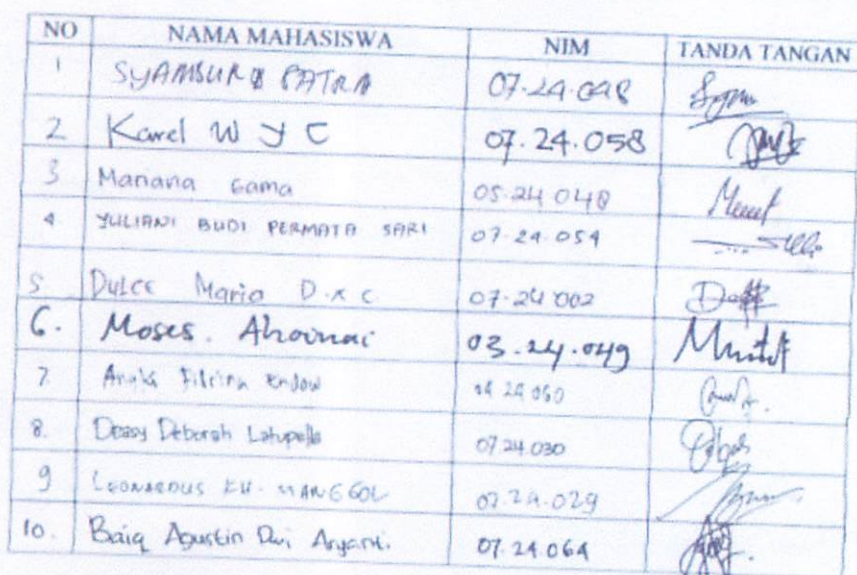 NO NAMA MAHASISWA NIM TANDA TANGAN
1 SYAMSUR PATRA 07.24.048
2 Karel W Y C 07.24.058
3 Mariana Gama 05.24.048
4 YULIANI BUDI PERMATA SARI 07.24.054
5 Dulce Maria D.x C 07.24.002
6. Moses. 03.24.049
7. 24.060
8. Deasy Deborah 07.24.030
9 LEONARDUS MANGGOL 07.24.029
10. Baiq Agustin Dwi Aryanti. 07.24.064